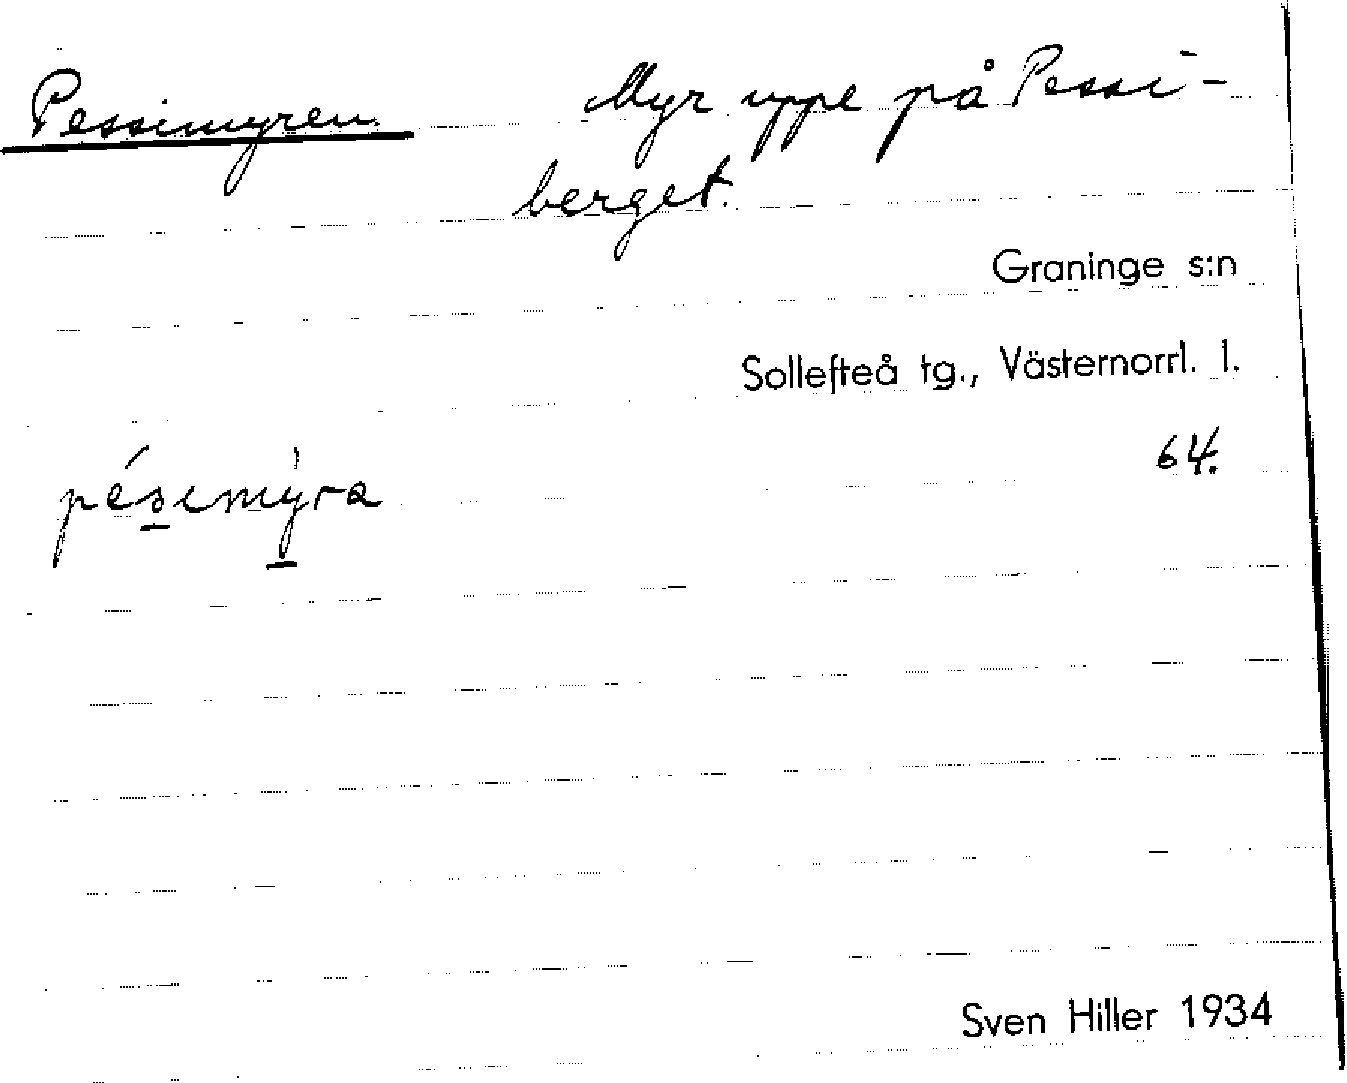 Pessimyren. Myr uppe på Pessi-
berget.
Graninge s:n
Sollefteå tg., Västernorrl. l.
64.
pésimỳra
Sven Hiller 1934